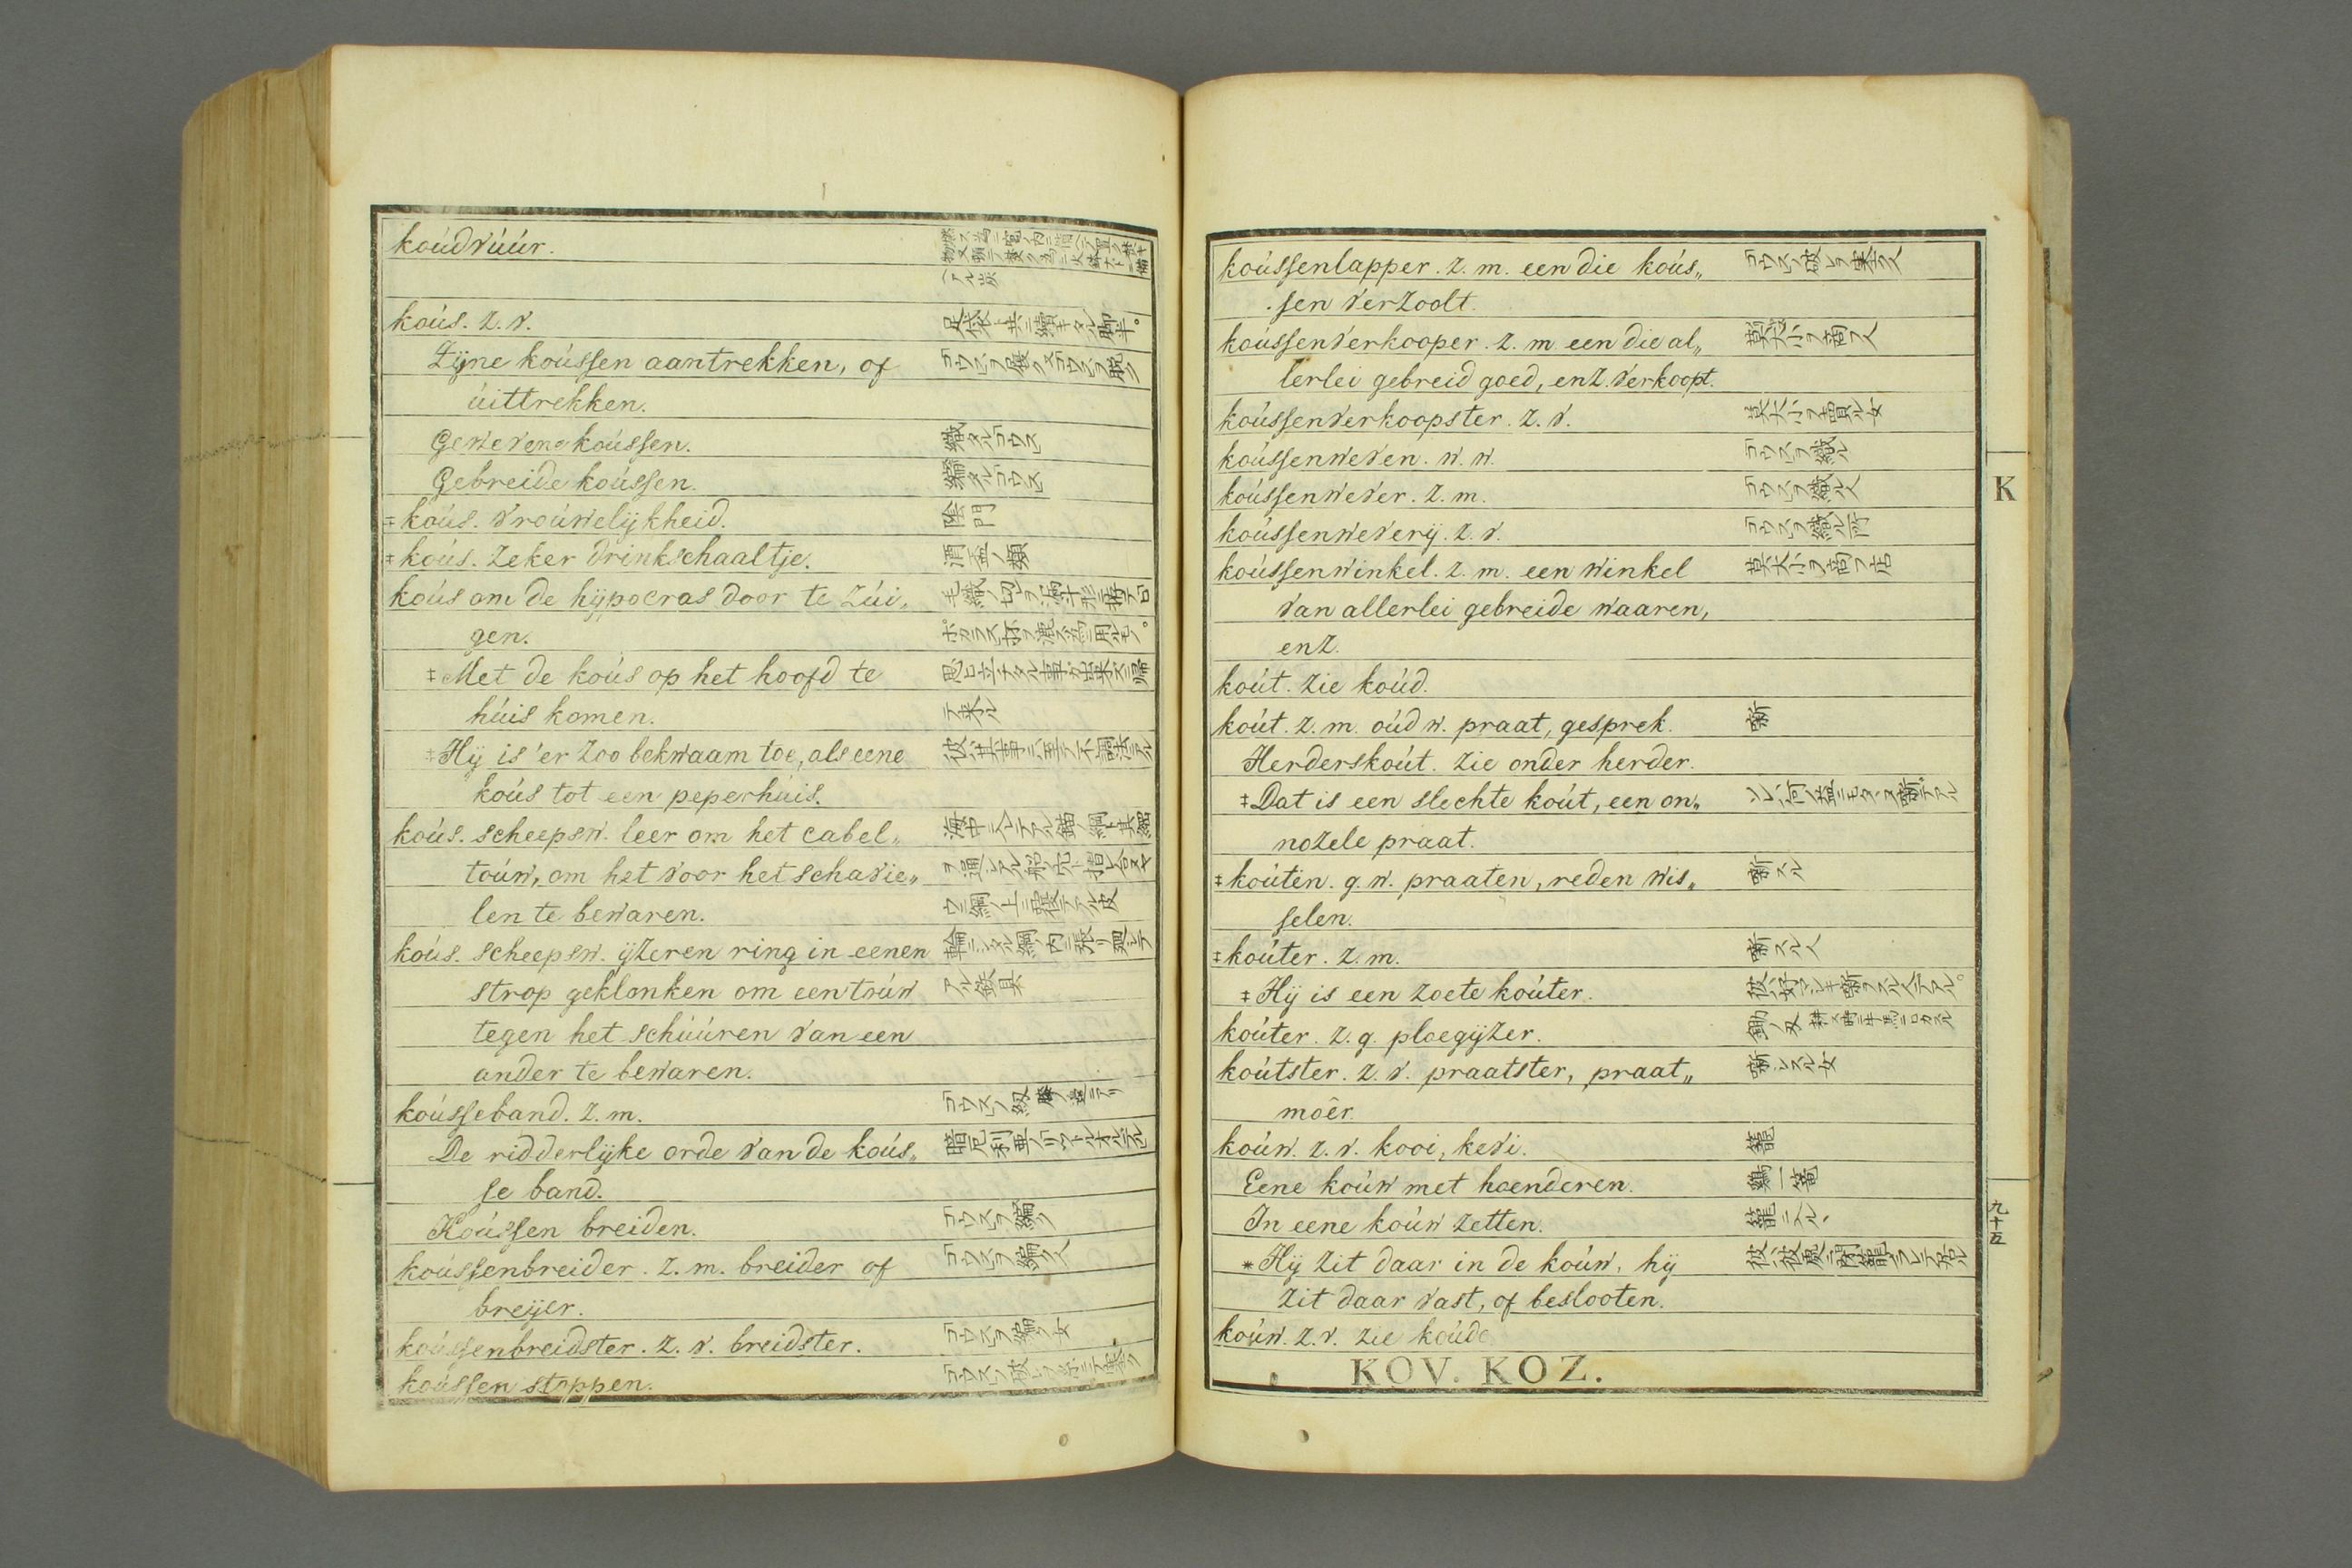 koúdvúúr.
koús. z. v.
Zijne koússen aantrekken, of
úittrekken.
Gewevene koússen.
織タルコウス
Gebreide koússen.
編タルコウス
‡koús. vroúwelijkheid.
陰門
‡koús. zeker drinkschaaltje.
酒盃ノ類
koús om de hijpocras door te zúi„
gen.
‡Met de koús op het hoofd te
húis komen.
テ来ル
‡Hij is 'er zoo bekwaam toe, als eene
koús tot een peperhúis.
koús. scheepsw. leer om het cabel„
toúw, om het voor het schavie„
len te bewaren.
koús. scheepsw. ijzeren ring in eenen
strop geklonken om een toúw
アル鉄具
tegen het schúúren van een
ander te bewaren.
koússeband. z. m.
De ridderlijke orde van de koús„
se band.
Koússen breiden.
コウスヲ編ク
koússenbreider. z. m. breider of
コウスヲ編ク人
breijer.
koússenbreidster. z. v. breidster.
コウスヲ編ク女
koússen stoppen.
koússenlapper. z. m. een die koús„
sen verzoolt.
koússenverkooper. z. m. een die al„
莫大小ヲ商フ人
lerlei gebreid goed, enz. verkoopt.
koússenverkoopster. z. v.
莫大小ヲ賣ル女
koússenweven. w. w.
コウスヲ織ル
koússenwever. z. m.
コウスヲ織ル人
koússenweverij. z. v.
コウスヲ織ル所
koússenwinkel. z. m. een winkel
莫大小ヲ商フ店
van allerlei gebreide waaren,
enz.
koút. zie koúd.
koút. z. m. oúd w. praat, gesprek.
噺
Herderskoút. zie onder herder.
‡Dat is een slechte koút, een on„
nozele praat.
‡koúten. g. w. praaten, reden wis„
噺スル
selen.
‡koúter. z. m.
噺スル人
‡Hij is een zoete koúter.
koúter. z. g. ploegijzer.
koútster. z. v. praatster, praat„
噺シスル女
moêr.
koúw. z. v. kooi, kevi.
籠
Eene koúw met hoenderen.
鷄一籠
In eene koúw zetten.
籠ニ入ル
*Hij zit daar in de koúw, hij
zit daar vast, of beslooten.
koúw. z. v. zie koúde
KOV. KOZ.
K
九十五